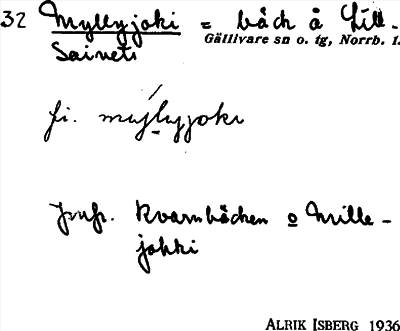 32 Myllyjoki = bäck å Lill-
Gällivare sn o. tg, Norrb. l.
Saivets
fi. myllyjoki
Jmfr. Kvarnbäcken o Mille-
jokki
ALRIK ISBERG 1936